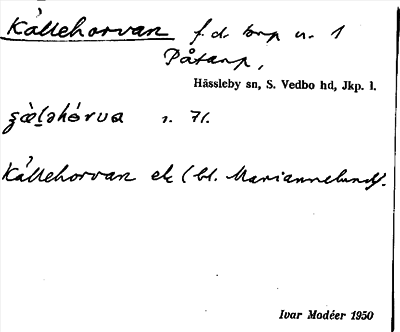 Kållehorvan f.d. torp u. 1
Påtarp,
Hässleby sn, S. Vedbo hd, Jkp. l.
r. 71.
Kållehorvan ek (bl. Mariannelund).
Ivar Modéer 1950